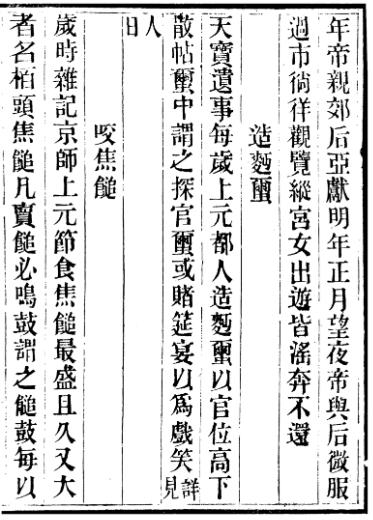 年帝親郊后亞獻明年正月望夜帝與后微服
過市徜徉觀覽縱宮女出遊皆滛奔不還
造麪璽
天寶遺事每歲上元都人造麪璽以官位高下
散帖璽中謂之探官璽或賭筵宴以為戲笑詳見
人日
咬焦䭔
歲時雜記京師上元節食焦䭔最盛且久又大
者名柏頭焦䭔凡賣䭔必鳴鼓謂之䭔鼓每以